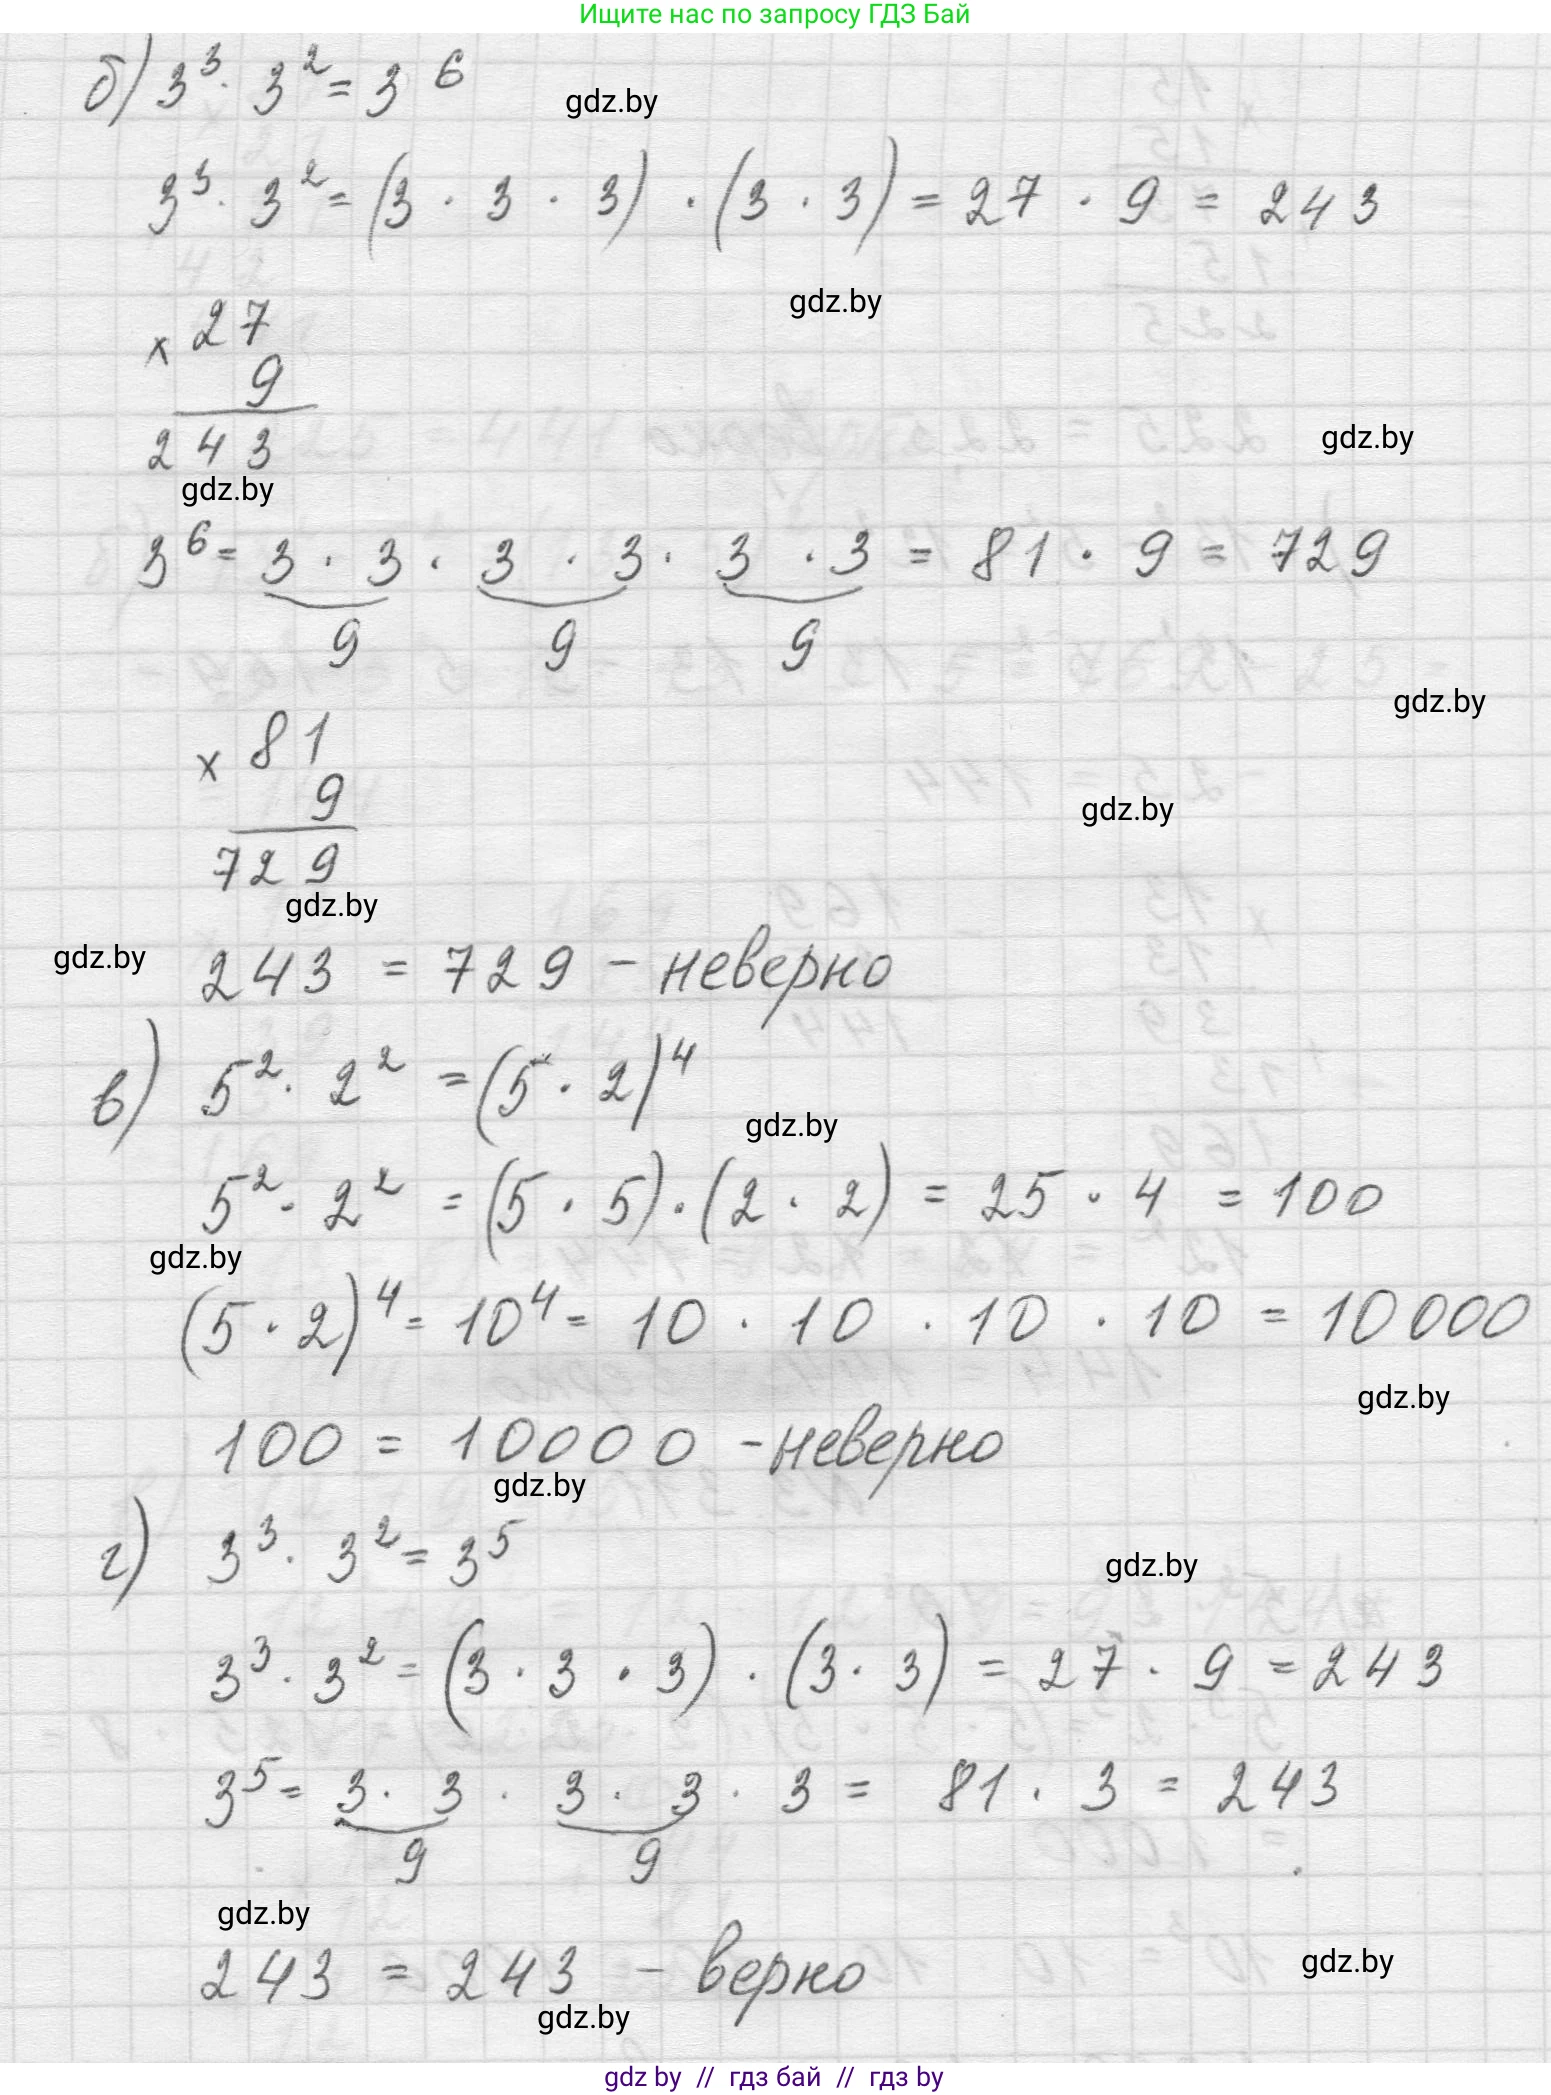 Ищите нас по запросу ГДЗ Бай
б) 3³ · 3² = 3⁶
gdz.by
3³ · 3² = (3 · 3 · 3) · (3 · 3) = 27 · 9 = 243
gdz.by
× 27
9
243
gdz.by
gdz.by
3⁶ = 3 · 3 · 3 · 3 · 3 · 3 = 81 · 9 = 729
9 9 9
gdz.by
× 81
9
gdz.by
729
gdz.by
gdz.by
243 = 729 - неверно
в) 5² · 2² = (5 · 2)⁴
gdz.by
5² · 2² = (5 · 5) · (2 · 2) = 25 · 4 = 100
gdz.by
(5 · 2)⁴ = 10⁴ = 10 · 10 · 10 · 10 = 10000
gdz.by
100 = 10000 - неверно
gdz.by
г) 3³ · 3² = 3⁵
gdz.by
3³ · 3² = (3 · 3 · 3) · (3 · 3) = 27 · 9 = 243
3⁵ = 3 · 3 · 3 · 3 · 3 = 81 · 3 = 243
9 9
gdz.by
243 = 243 - верно
gdz.by
gdz.by
gdz by // гдз бай // гдз by